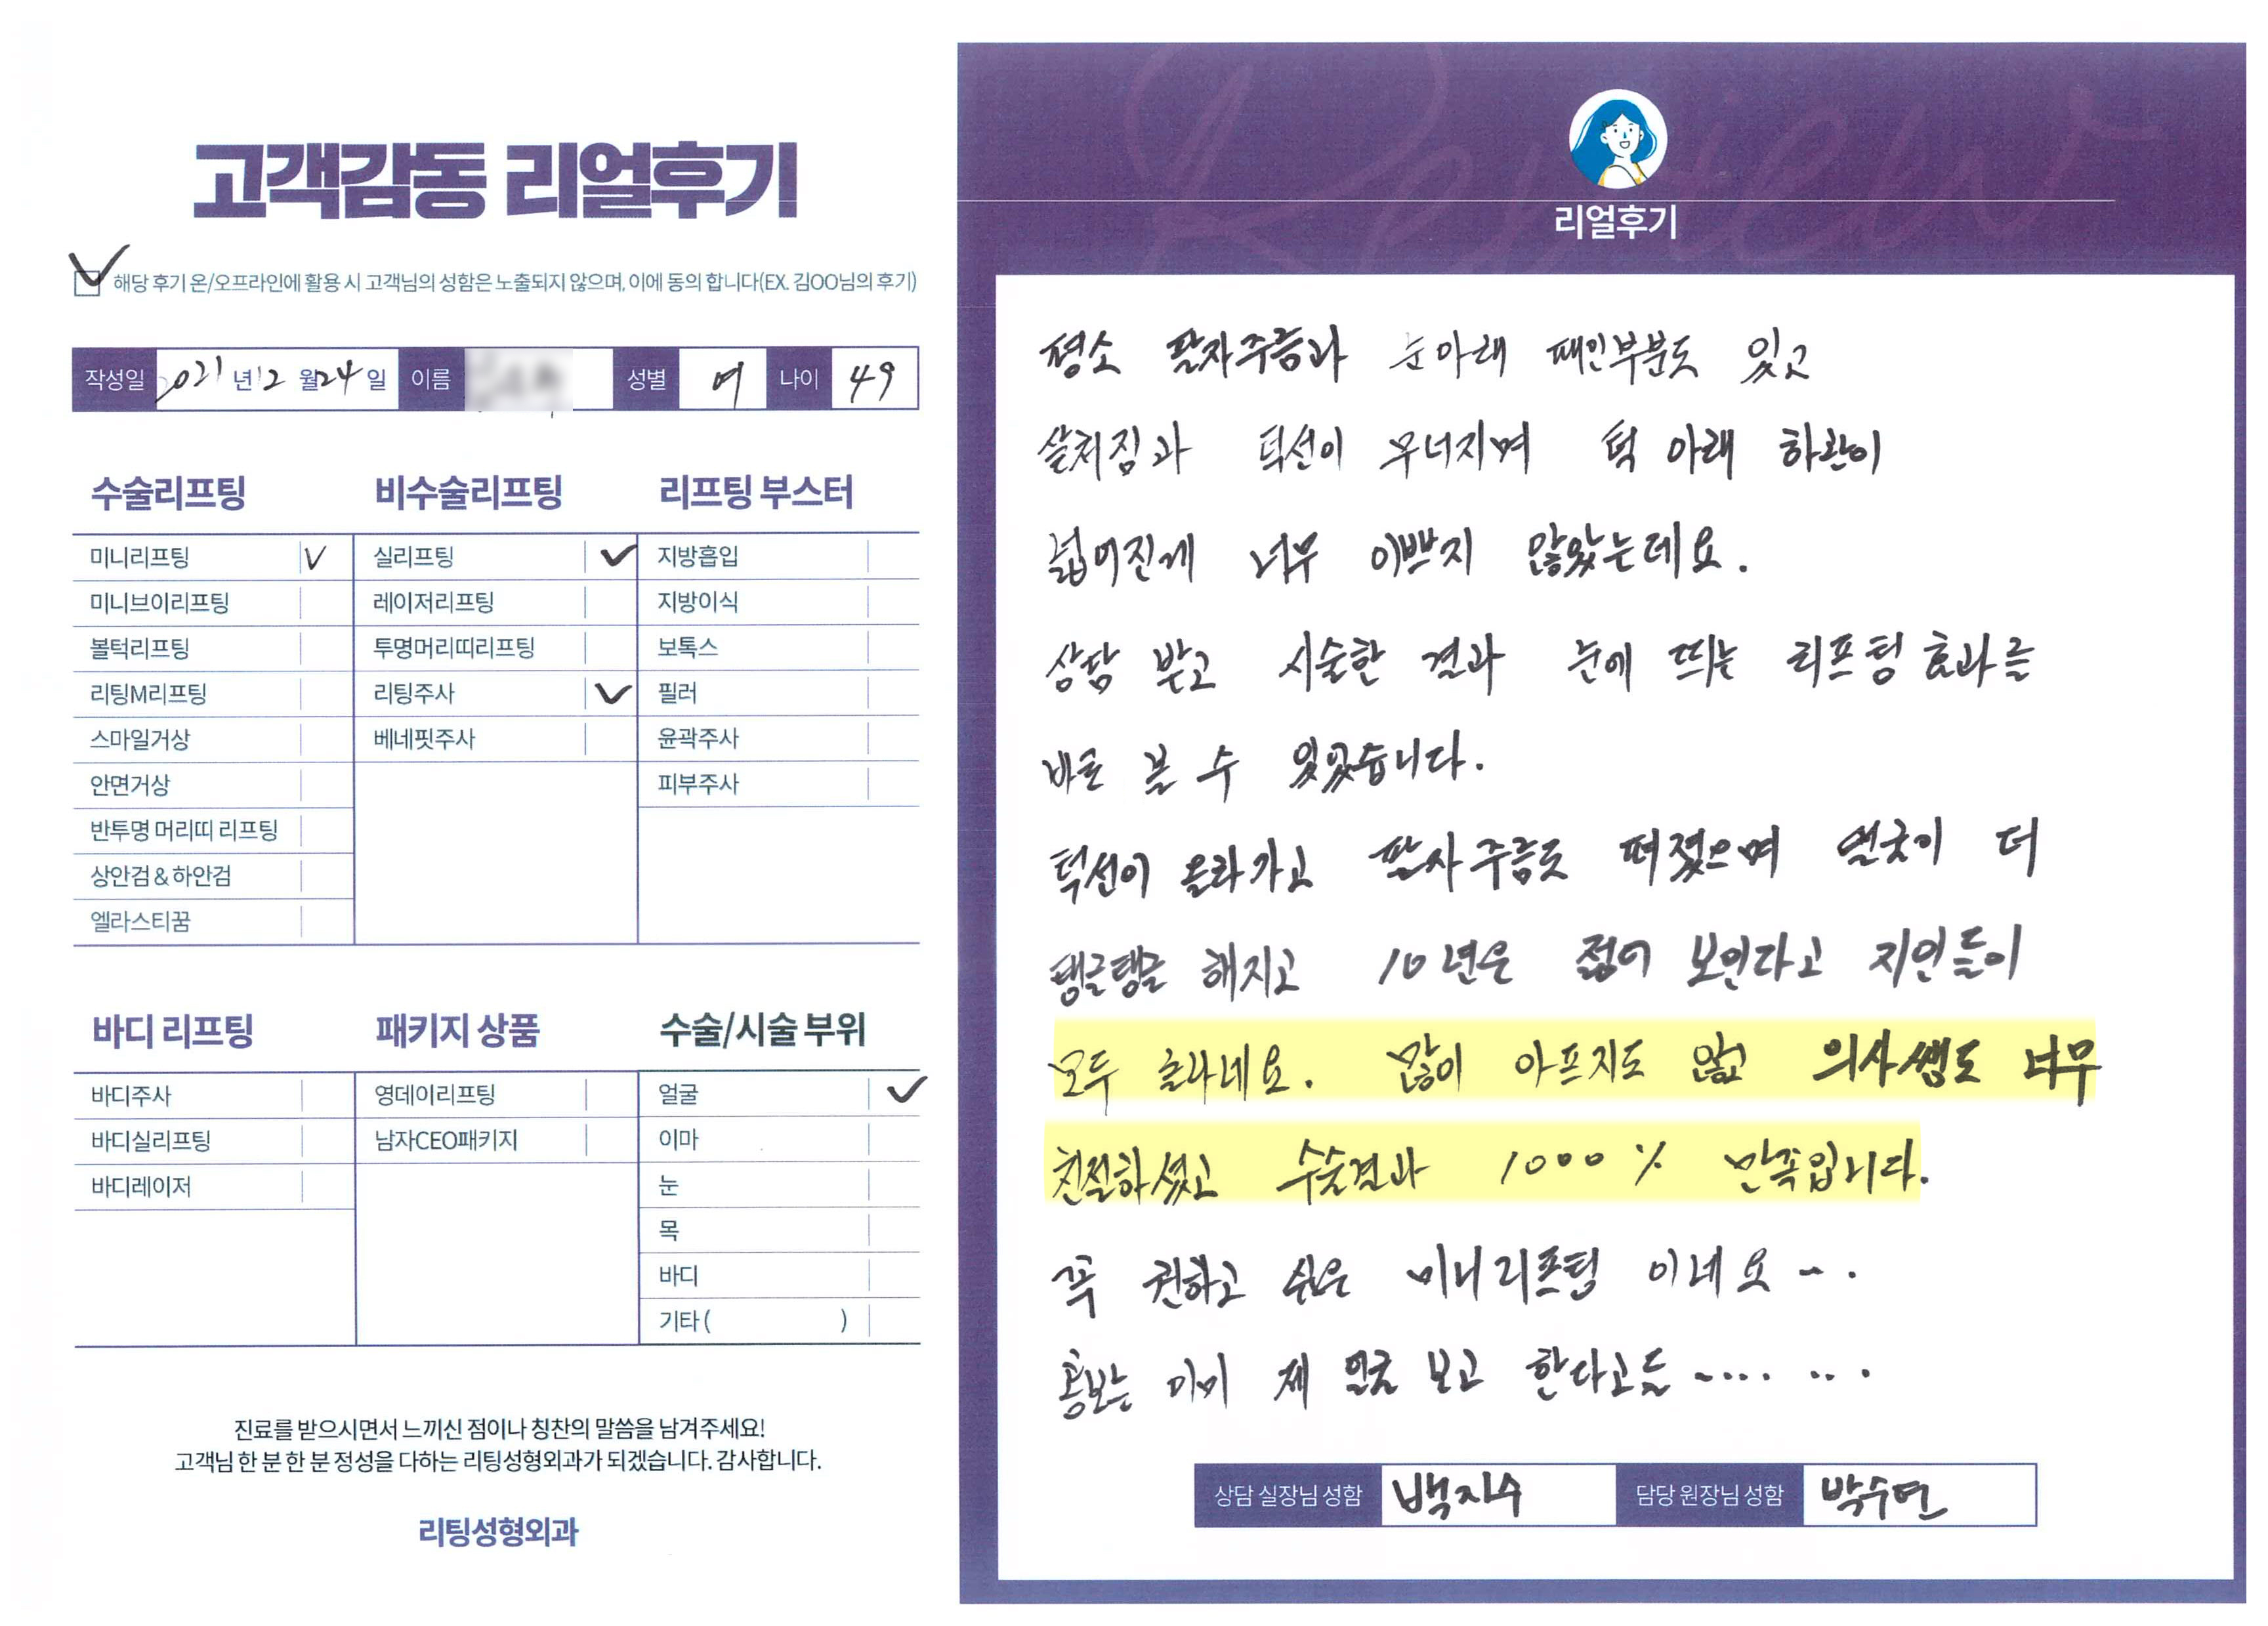 고객감동 리얼후기
해당 후기 온/오프라인에 활용 시 고객님의 성함은 노출되지 않으며, 이에 동의 합니다(EX. 김OO님의 후기)
작성일 2021 년 12 월 24 일 이름 성별 여 나이 49
수술리프팅
미니리프팅 V
미니브이리프팅
볼턱리프팅
리팅M리프팅
스마일거상
안면거상
반투명 머리띠 리프팅
상안검 & 하안검
엘라스티꿈
비수술리프팅
실리프팅
레이저리프팅
투명머리띠리프팅
리팅주사
베네핏주사
리프팅 부스터
지방흡입
지방이식
보톡스
필러
윤곽주사
피부주사
바디 리프팅
바디주사
바디실리프팅
바디레이저
패키지 상품
영데이리프팅
남자CEO패키지
수술/시술 부위
얼굴
이마
눈
목
바디
기타 ( )
진료를 받으시면서 느끼신 점이나 칭찬의 말씀을 남겨주세요!
고객님 한 분 한 분 정성을 다하는 리팅성형외과가 되겠습니다. 감사합니다.
리팅성형외과
Review
리얼후기
평소 팔자주름과 눈아래 패인부분도 있고
살쳐짐과 턱선이 무너지며 턱 아래 하관이
넓어진게 너무 이쁘지 않았는데요.
상담 받고 시술한 결과 눈에 띄는 리프팅 효과를
바로 볼 수 있었습니다.
턱선이 올라가고 팔자주름도 펴졌으며 얼굴이 더
탱글탱글 해지고 10년은 젊어 보인다고 지인들이
모두 놀라네요. 많이 아프지도 않고 의사쌤도 너무
친절하셨고 수술결과 1000% 만족입니다.
꼭 권하고 싶은 미니리프팅 이네요 ~.
홍보는 이미 제 얼굴 보고 한다고들 ~.... ...
상담 실장님 성함 백지수 담당 원장님 성함 박수연